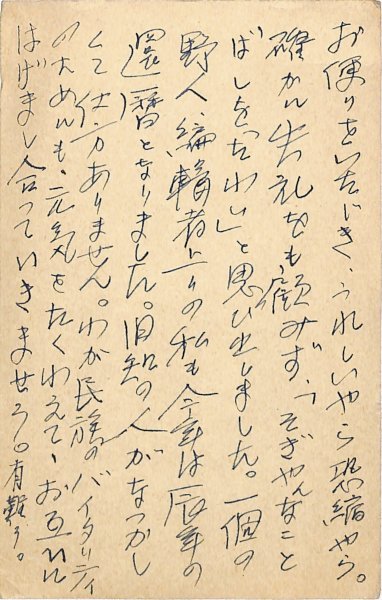 お便りをいたゞき、うれしいやら恐縮やら。
確か以失礼をも顧みず、「そぎやんなこと
ばしを〝たわい」と思ひ出しました。一個の
野人、編輯者上りの私も今年は辰年の
還暦となりました。旧知の人がなつかし
くて仕方ありません。わが民族のバイタリティ
のためにも、元気をたくわえて、お互いに
はげまし合っていきませう。有難う。